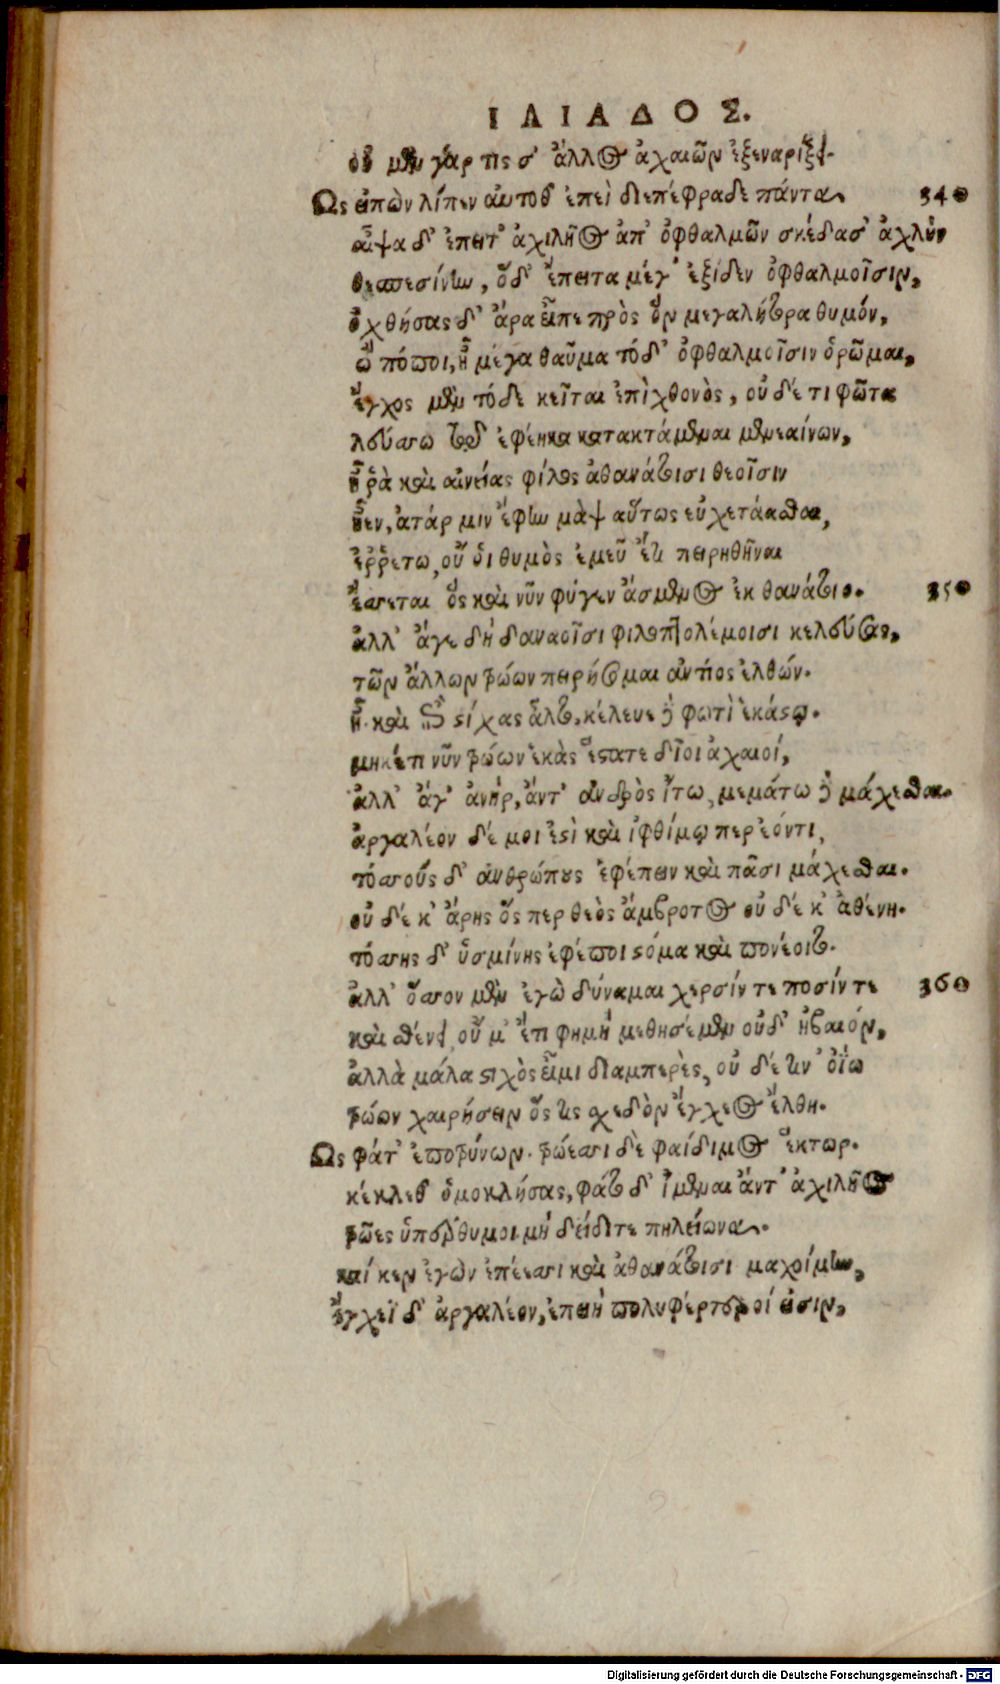 ΙΛΙΑΔΟΣ.
οὐ μὲν γάρ τίς σ' ἄλλος ἀχαιῶν ἐξεναρίξει.
Ως εἰπὼν λίπεν αὐτοῦ ἐπεὶ διεπέφραδε πάντα. 340
αἶψα δ' ἔπειτ' ἀχιλῆος ἀπ' ὀφθαλμῶν σκέδασ' ἀχλὺν
θεσπεσίην, ὅδ' ἔπειτα μέγ' ἐξίδεν ὀφθαλμοῖσιν,
ὀχθήσας δ' ἄρα εἶπε πρὸς ὃν μεγαλήτορα θυμόν,
ὢ πόποι, ἦ μέγα θαῦμα τόδ' ὀφθαλμοῖσιν ὁρῶμαι,
ἔγχος μὲν τόδε κεῖται ἐπὶ χθονὸς, οὐδέ τι φῶτα
λεύσσω τῷ ἐφέηκα κατακτάμεναι μενεαίνων,
ἦ ῥὰ καὶ αἰνείας φίλος ἀθανάτοισι θεοῖσιν
ἦεν, ἀτάρ μιν ἔφην μὰψ αὔτως εὐχετάασθαι,
ἐῤῥέτω, οὔ οἱ θυμὸς ἐμεῦ ἔτι πειρηθῆναι
ἔσσεται ὃς καὶ νῦν φύγεν ἄσμενος ἐκ θανάτοιο. 350
ἀλλ' ἄγε δὴ δαναοῖσι φιλοπτολέμοισι κελεύσας,
τῶν ἄλλων τρώων πειρήσομαι ἀντίος ἐλθών.
ἦ. καὶ ἐπὶ στίχας ἆλτο, κέλευε δὲ φωτὶ ἑκάστῳ.
μηκέτι νῦν τρώων ἑκὰς ἔστατε δῖοι ἀχαιοί,
ἀλλ' ἄγ' ἀνὴρ, ἄντ' ἀνδρὸς ἴτω, μεμάτω δὲ μάχεσθαι.
ἀργαλέον δέ μοι ἐστὶ καὶ ἰφθίμῳ περ ἐόντι,
τόσσους δ' ἀνθρώπους ἐφέπειν καὶ πᾶσι μάχεσθαι.
οὐδέ κ' ἄρης ὅς περ θεὸς ἄμβροτος οὐδέ κ' ἀθήνη.
τόσσης δ' ὑσμίνης ἐφέποι στόμα καὶ πονέοιτο.
ἀλλ' ὅσσον μὲν ἐγὼ δύναμαι χερσίν τε ποσίν τε 360
καὶ σθένει, οὔ μ' ἔτι φημὴ μεθησέμεν οὐδ' ἠβαιόν,
ἀλλὰ μάλα στιχὸς εἶμι διαμπερὲς, οὐδέ τιν' οἴω
τρώων χαιρήσειν ὅς τις σχεδὸν ἔγχεος ἔλθῃ.
Ως φάτ' ἐποτρύνων. τρώεσσι δὲ φαίδιμος ἕκτωρ.
κέκλεθ' ὁμοκλήσας, φάτο δ' ἴμεναι ἄντ' ἀχιλῆος
τρῶες ὑπέρθυμοι μὴ δείδιτε πηλείωνα.
καί κεν ἐγὼν ἐπέεσσι καὶ ἀθανάτοισι μαχοίμην,
ἔγχεϊ δ' ἀργαλέον, ἐπειὴ πολυφέρτεροί εἰσιν,
Digitalisierung gefördert durch die Deutsche Forschungsgemeinschaft - DFG